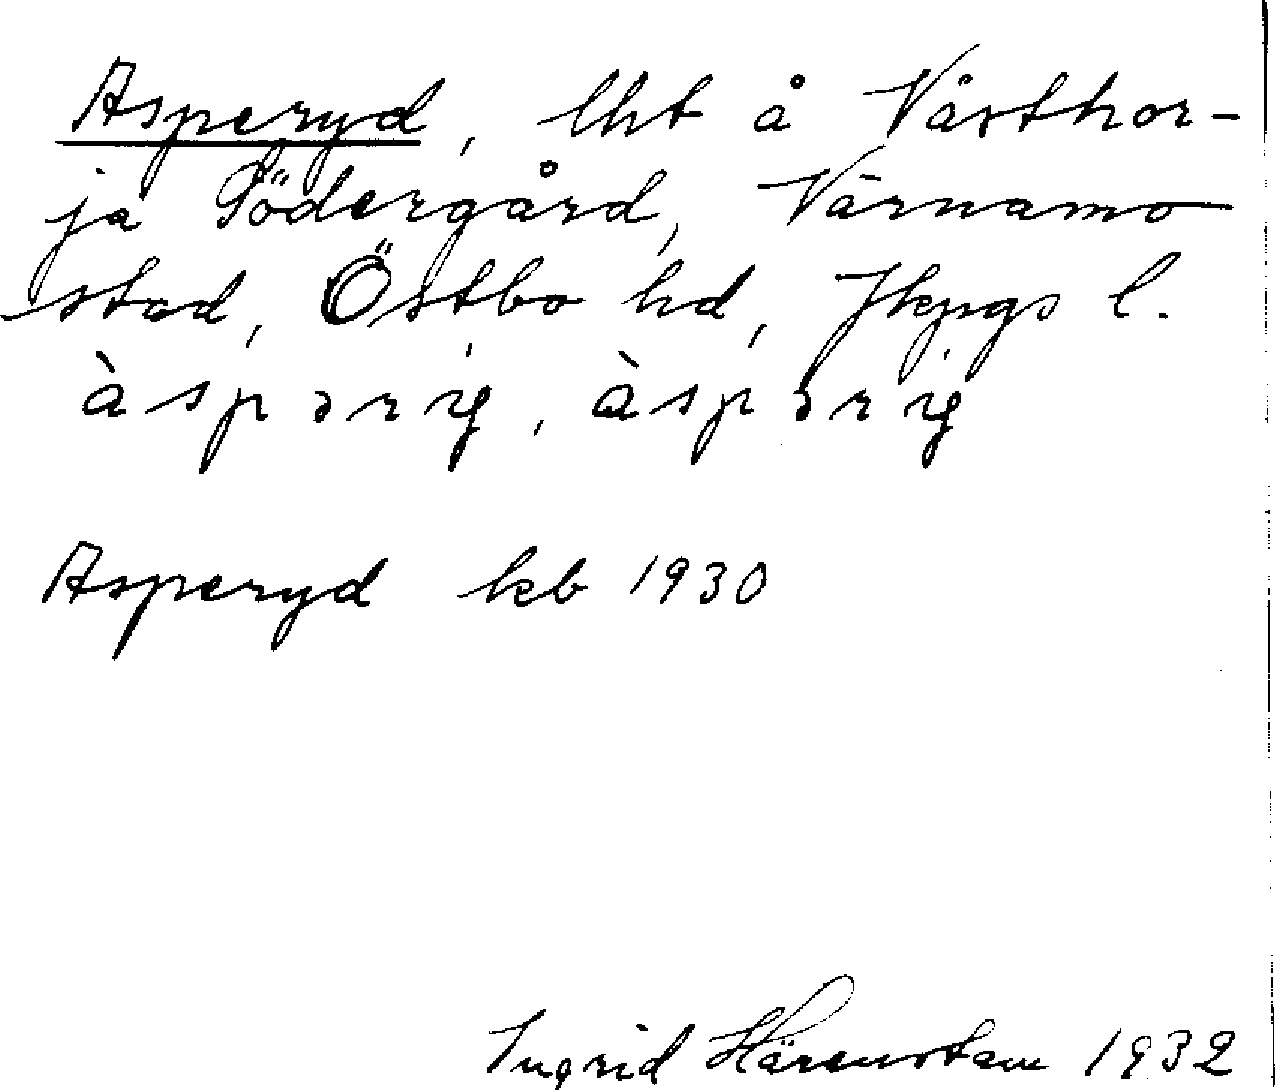 Asperyd, lht å Västhor-
ja Södergård, Värnamo
stad, Östbo hd, Jkpgs l.
àspərıɡ, àspərıɡ
Asperyd kb 1930
Ingrid Härenstam 1932